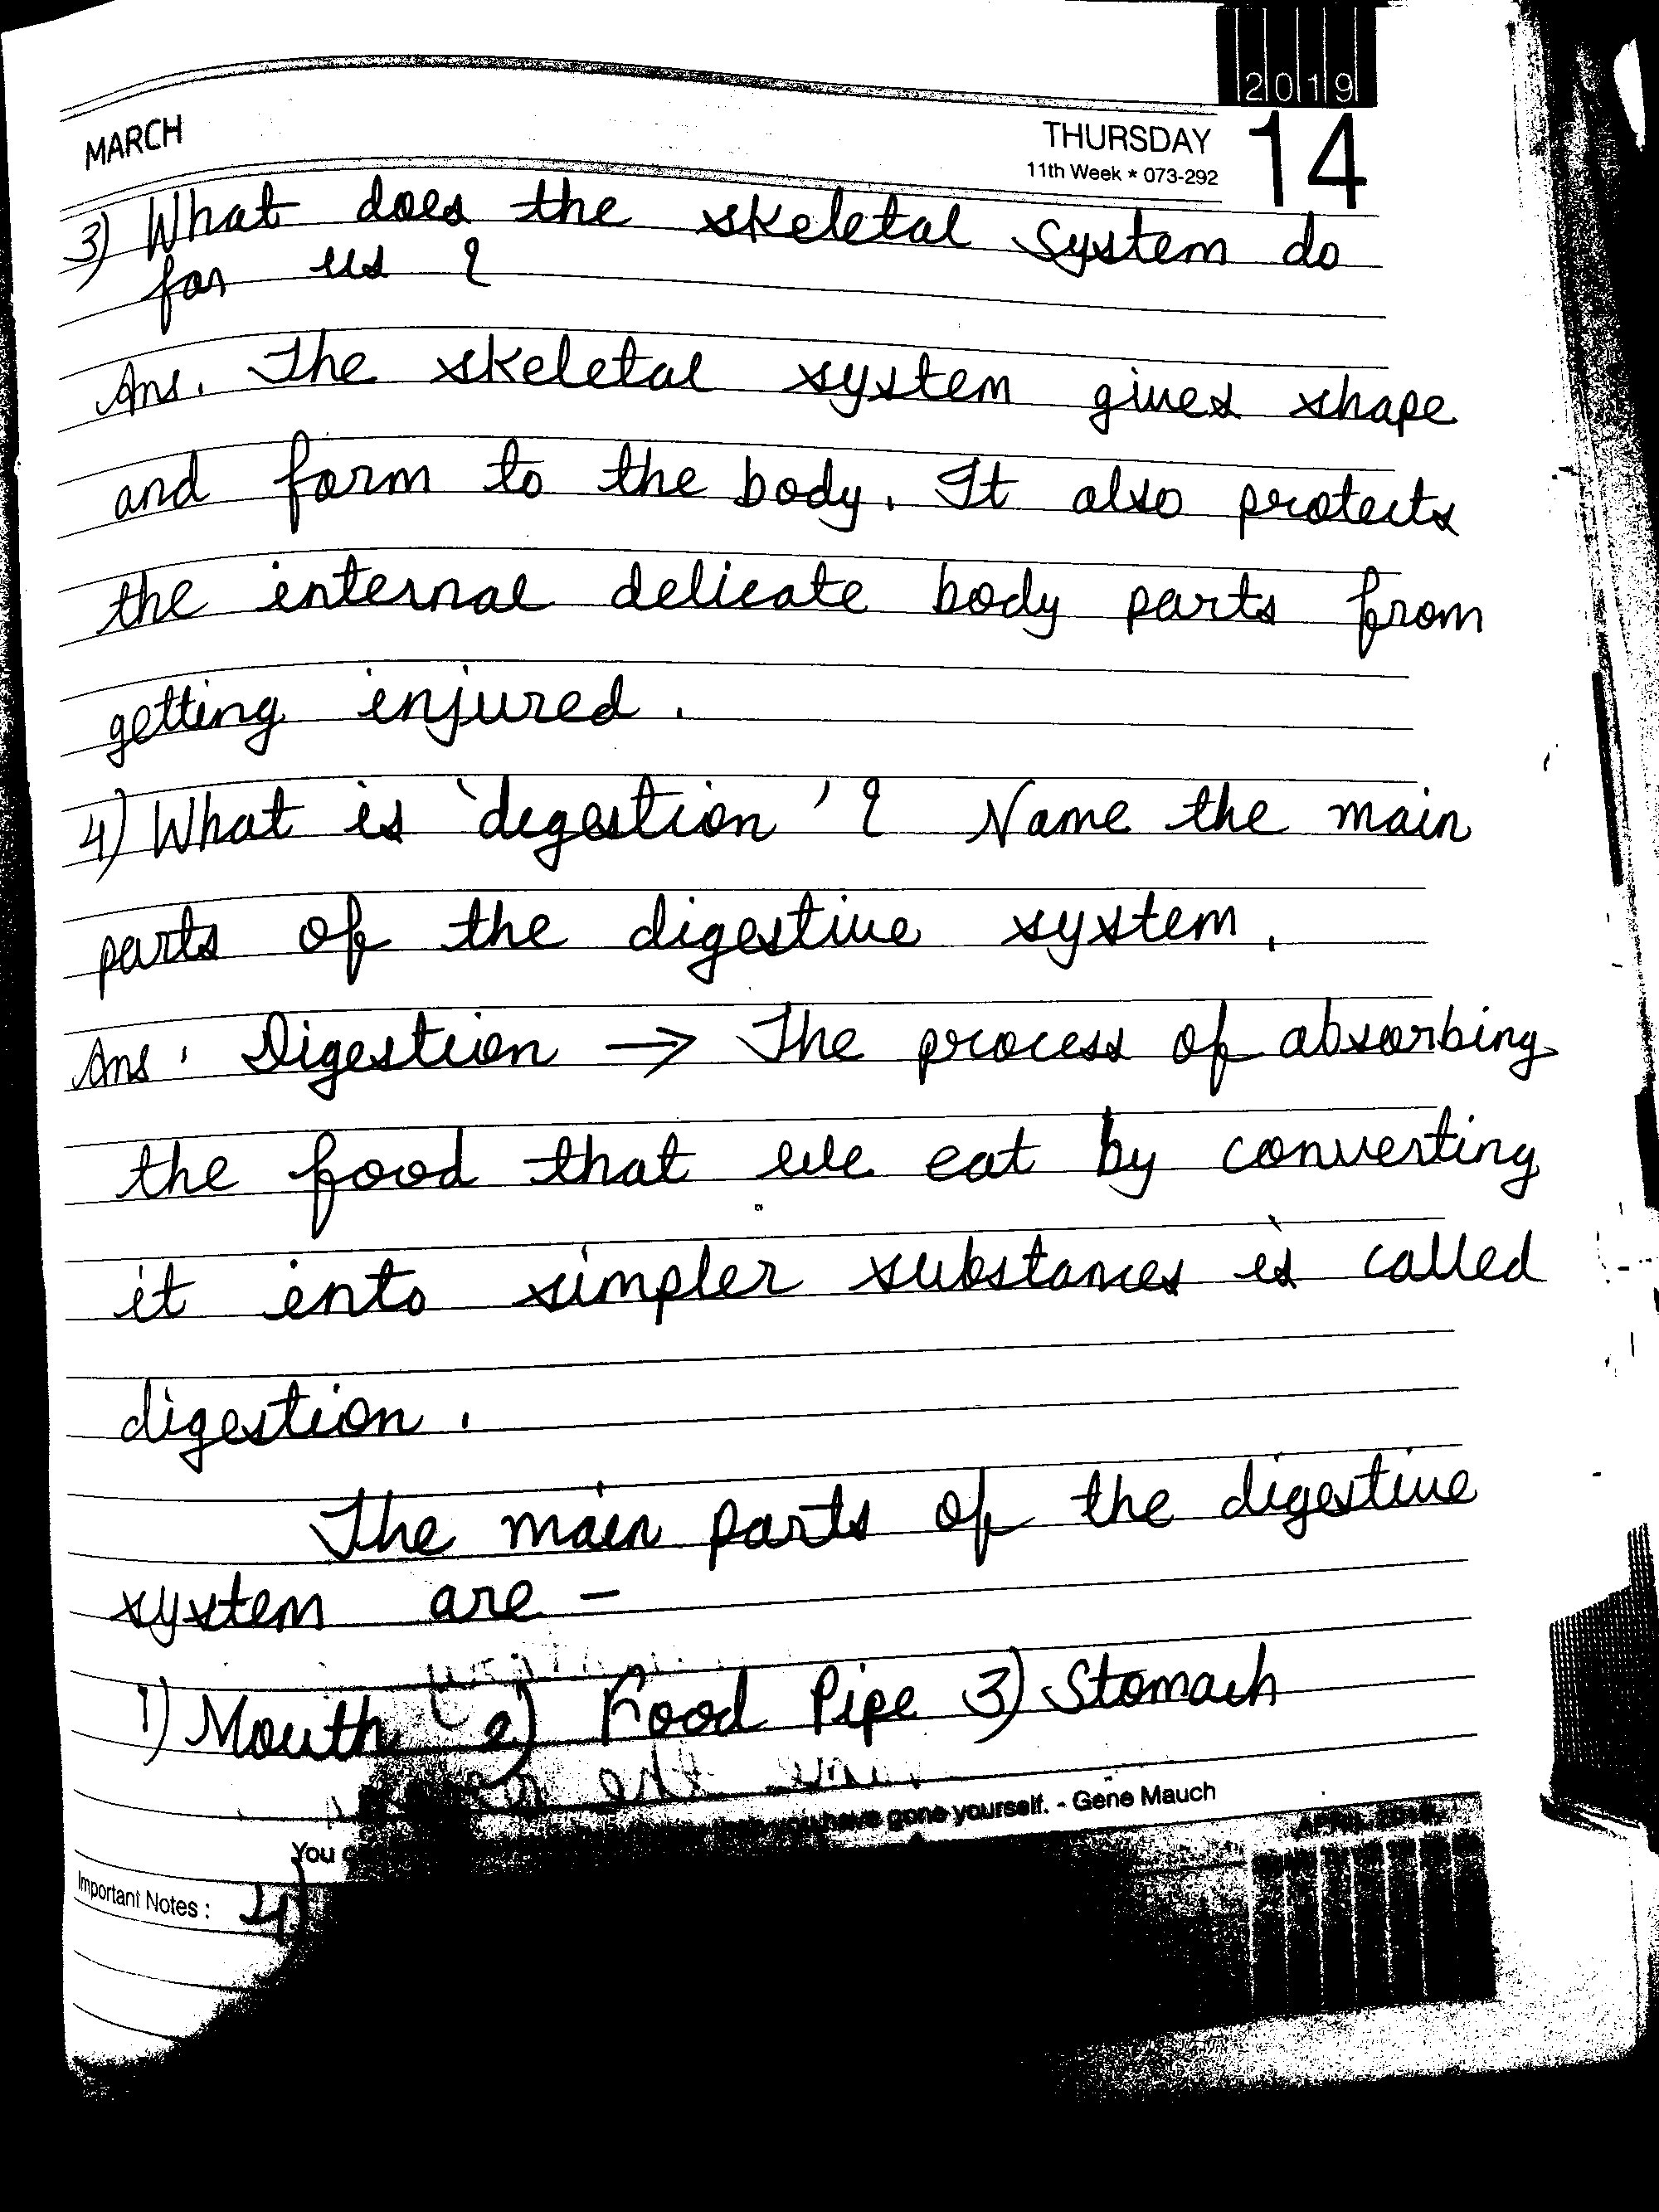 2019
MARCH
THURSDAY 14
11th Week * 073-292
3) What does the skeletal system do
for us ?
Ans. The skeletal system gives shape
and form to the body. It also protects
the internal delicate body parts from
getting injured.
4) What is 'degestion' ? Name the main
parts of the digestive system.
Ans. Digestion → The process of absorbing
the food that we eat by converting
it into simpler substances is called
digestion.
The main parts of the digestive
system are -
1) Mouth 2) Food Pipe 3) Stomach
You have gone yourself. - Gene Mauch
APRIL
Important Notes : 4)